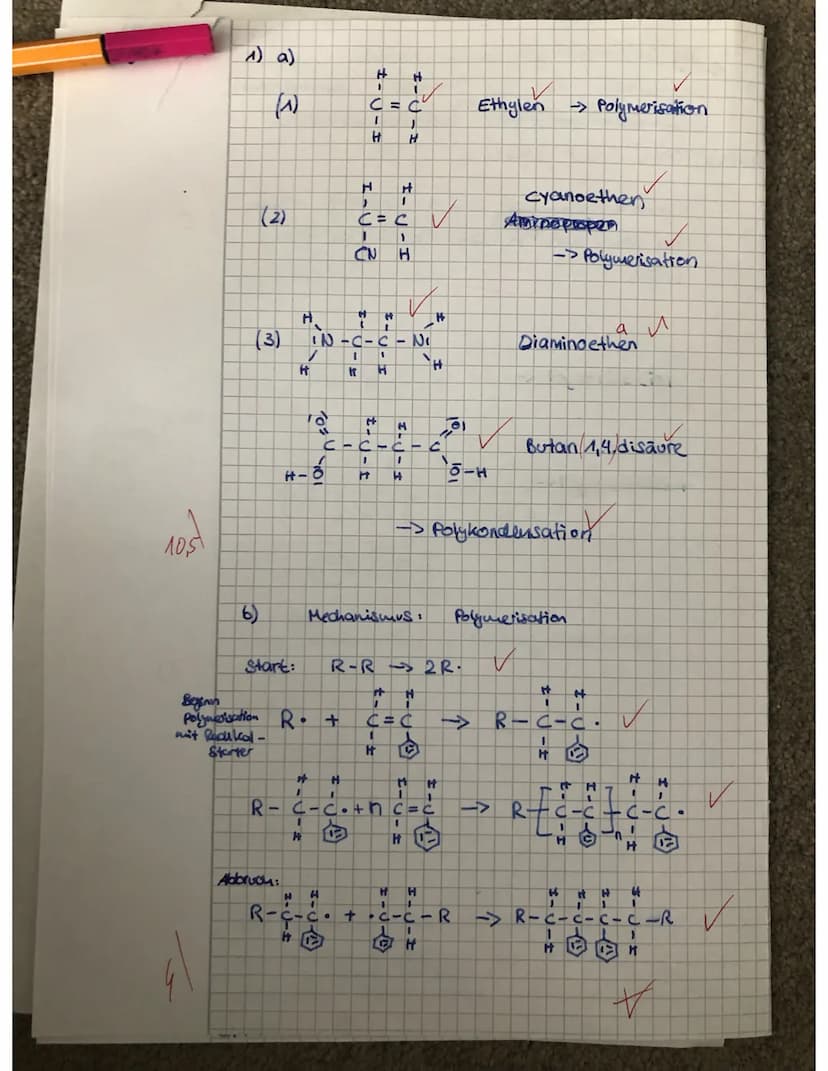 1) a)
H H
(1) C = C Ethylen → Polymerisation
H H
H H Cyanoethen
(2) C = C
CN H → Polymerisation
H H H H
(3) N - C - C - N Diaminoethen a
H H H H
O H H O
C - C - C - C Butan(1,4)disäure
H - O H H O - H
→ Polykondensation
10,5
b) Mechanismus: Polymerisation
Start: R-R → 2R·
Beginn
Polymerisation
mit Radikal-
Starter
H H H H
R· + C = C → R - C - C ·
H H
H H H H H H H H
R - C - C· + n C = C → R [ C - C ]n C - C ·
H H H H
Abbruch:
H H H H H H H H
R - C - C · + · C - C - R → R - C - C - C - C - R
H H H H
4